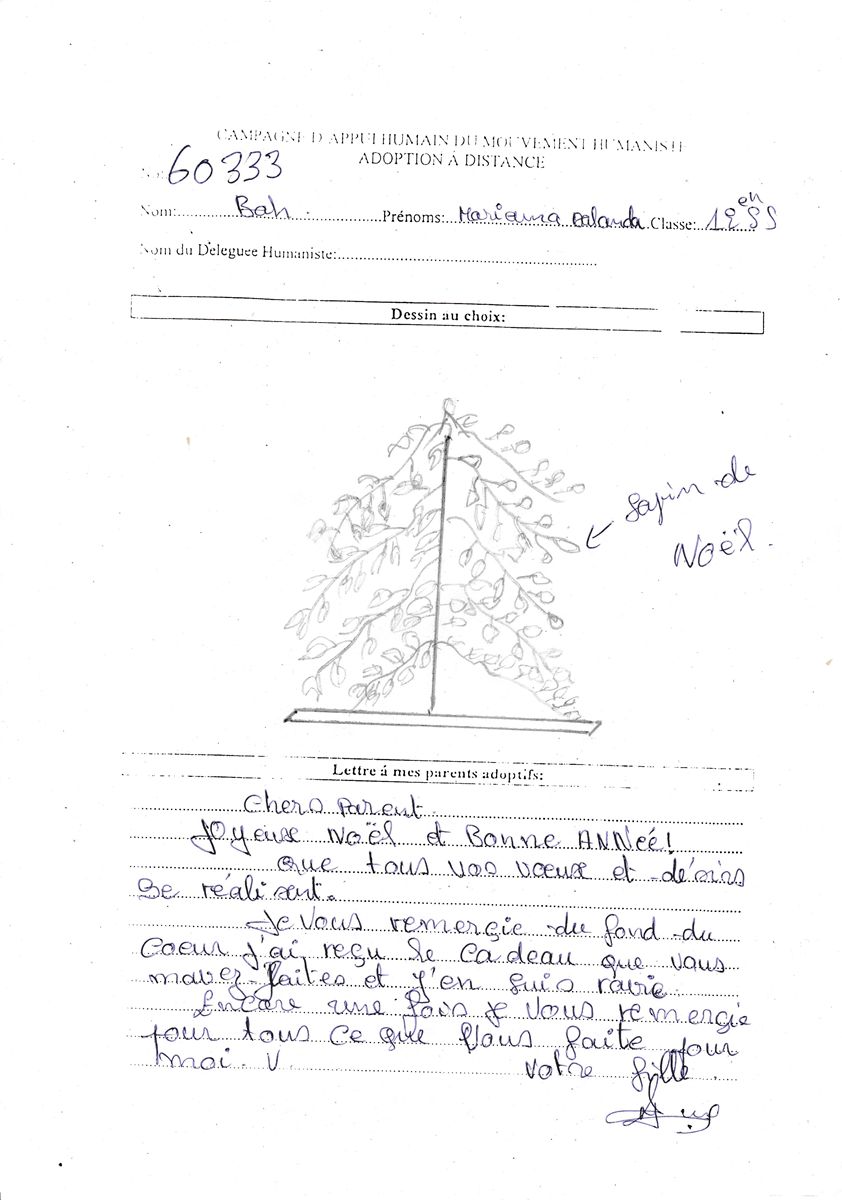 CAMPAGNE D'APPUI HUMAIN DU MOUVEMENT HUMANISTE
ADOPTION À DISTANCE
No: 60333
Nom: Bah Prénoms: Mariama Classe: 12 en SS
Nom du Deleguee Humaniste:
Dessin au choix:
Sapin de
Noël.
Lettre á mes parents adoptifs:
Chers Parent.
Joyeuse Noël et Bonne ANNeé!
Que tous vos voeux et désirs
se réalisent.
Je vous remergie du fond du
Coeur j'ai reçu le cadeau que vous
mavez faites et j'en suis ravie
Encore une fois je vous remergie
pour tous ce que vous faite pour
moi. V votre fille.